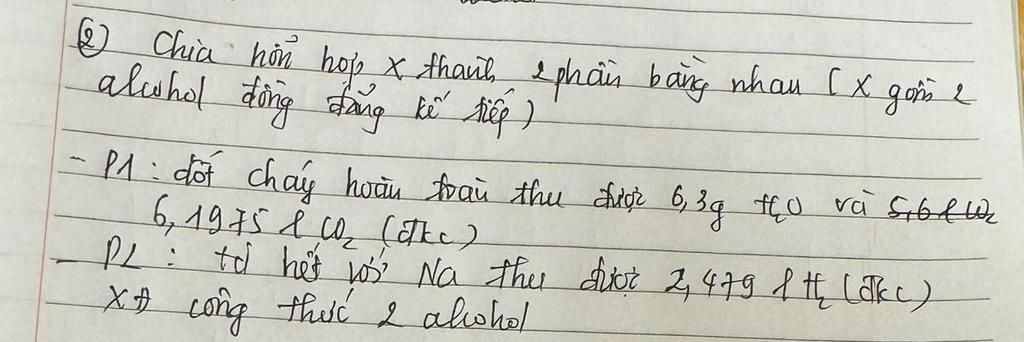 ② Chia hỗn hợp X thành 2 phần bằng nhau (X gồm 2
alcohol đồng đẳng kế tiếp)
- P1 : đốt cháy hoàn toàn thu được 6,3g H₂O và 5,6 l CO₂
6,1975 l CO₂ (đkc)
- P2 : td hết với Na thu được 2,479 l H₂ (đkc)
XĐ công thức 2 alcohol